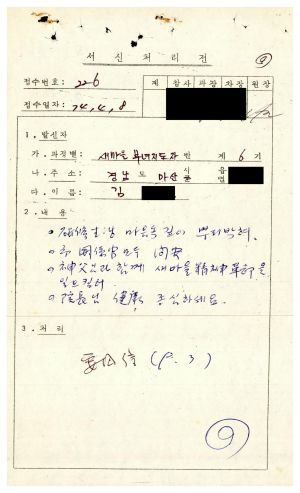 서 신 처 리 전
⑨
접수번호: 226
접수일자: 74, 4, 8
계 참사 과장 차장 원장
1. 발신자
가. 과정별: 새마을 부녀지도자 반 제 6 기
나. 주소: 경남 도 마산 시 읍
군 면
다. 이름: 김
2. 내용
研修生活 마음속 깊이 뿌리박혀.
두 関係官 모두 问安
神父님과 함께 새마을 精神革命을
일으킬터.
院長님 健康 조심하세요.
3. 처리
(P. 3)
⑨